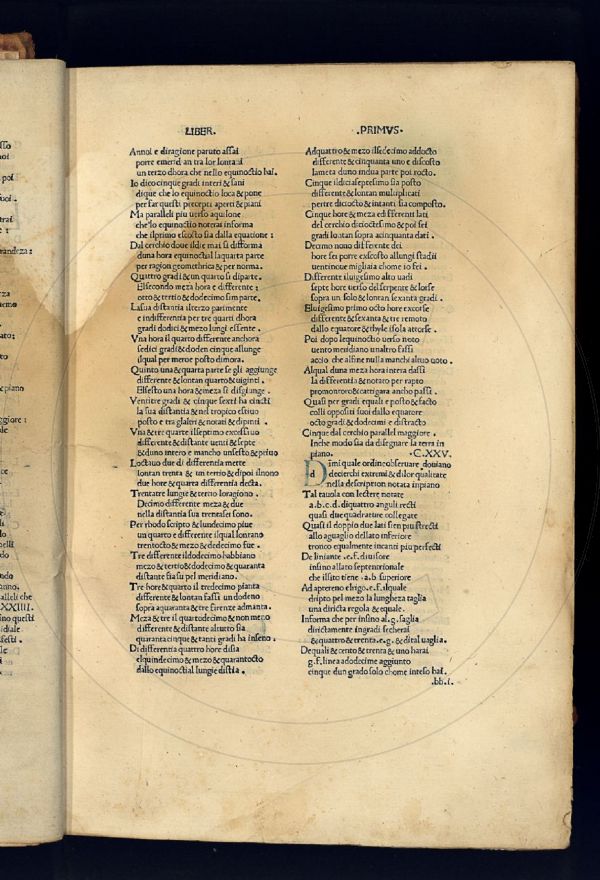 LIBER.
Annoi e diragione paruto assai
porte emerid an tra lor lontani
un terzo dhora che nello equinoctio hai.
Io dico cinque gradi interi & sani
dique che lo equinoctio loca & pone
per far questi precepti aperti & piani
Ma paralleli piu uerso aquilone
che lo equinoctio noterai informa
che ilprimo escosto sia dalla equatione :
Dal cerchio doue ildi e mai si difforma
duna hora equinoctial laquarta parte
per ragion geometrica & per norma.
Quattro gradi & un quarto si diparte.
Elsecondo meza hora e differente ;
otto & tertio & dodecimo sim parte.
La sua distantia ilterzo parimente
e indifferentia per tre quarti dhora
gradi dodici & mezo lungi essente .
Vna hora il quarto differente anchora
sedici gradi & doden cinque allunge
ilqual per meroe posto dimora.
Quinto una & quarta parte se gli aggiunge
differente & lontan quarto & uiginti .
Elsesto una hora & meza si disgiunge .
Ventitre gradi & cinque sexti ha cincti
la sua distantia & nel tropico estiuo
posto e tra glaltri & notati & dipinti .
Vna & tre quarte ilseptimo excessiuo
differente & distante uenti & septe
& duno intero e mancho unsesto & priuo
Loctauo due di differentia mette
lontan trenta & un tertio & dipoi ilnono
due hore & quarta differentia decta.
Trentatre lungi e & tertio loragiono .
Decimo differente meza & due
nella distantia sua trentasei sono.
Per rhodo scripto & lundecimo piue
un quarto e differente ilqual lontano
trentocto & mezo & dedecimo fue .
Tre differente ildodecimo habbiano
mezo & tertio & dodecimo & quaranta
distante sia su pel meridiano.
Tre hore & quarto il tredecimo pianta
differente & lontan fassi undodeno
sopra aquaranta & tre firenze admanta .
Meza & tre il quartodecimo & non meno
differente & distante altutto sia
quarantacinque & tanti gradi ha inseno :
Di differentia quattro hore disia
elquindecimo & mezo & quarantocto
dallo equinoctial lungi e distia .
.PRIMVS.
Adquattro & mezo ilsedecimo addocto
differente & cinquanta uno e discosto
la meta duno indua parte poi rocto.
Cinque ildiciaseptesimo sia posto
differente & lontan multiplicati
per tre diciocto & intanti sia composto.
Cinque hore & meza e differenti lati
del cerchio dicioctesimo & poi sei
gradi lontan sopra acinquanta dati .
Decimo nono differente dei
hore sei porre exscosto allungi stadii
uentinoue migliaia chome io sei .
Differente iluigesimo alto uadii
septe hore uerso del serpente & lorse
sopra un solo & lontan sexanta gradi .
Eluigesimo primo octo hore excorse
differente & sexanta & tre remoto
dallo equatore & thyle isola attorse .
Poi dopo lequinoctio uerso noto
uento meridiano unaltro fassi
accio che alfine nulla manchi altuo uoto .
Alqual duna meza hora intera dassi
la differentia & notato per rapto
promontoro & cattigara ancho passi .
Quasi per gradi equali e posto & facto
colli oppositi suoi dallo equatore
octo gradi & dodecimi e distracto
Cinque dal cerchio parallel maggiore .
Inche modo sia da disegnare la terra in
piano. .C.XXV.
Dimi quale ordine obseruare douiano
decierchi extremi & dilor qualitate
nella description notata inpiano
Tal tauola con lectere notate
a.b.c.d. diquattro anguli recti
quasi due quadrature collegate
Quasi il doppio due lati sien piu strecti
allo aguaglio dellato inferiore
tronco equalmente incanti piu perfecti
De liniante .e.f. diuisore
insino allato septentrionale
che ilsito tiene .a.b superiore
Ad apte reno elrigo .e.f. ilquale
dripto pel mezo la lungheza taglia
una diricta regola & equale.
Informa che per insino al.g. saglia
dirictamente ingradi secherai
& quattro & trenta .e.g. & dital uaglia.
De quali & cento & trenta & uno harai
g.f. linea adodecime aggiunto
cinque dun grado solo chome inteso hai .
.bb.i.